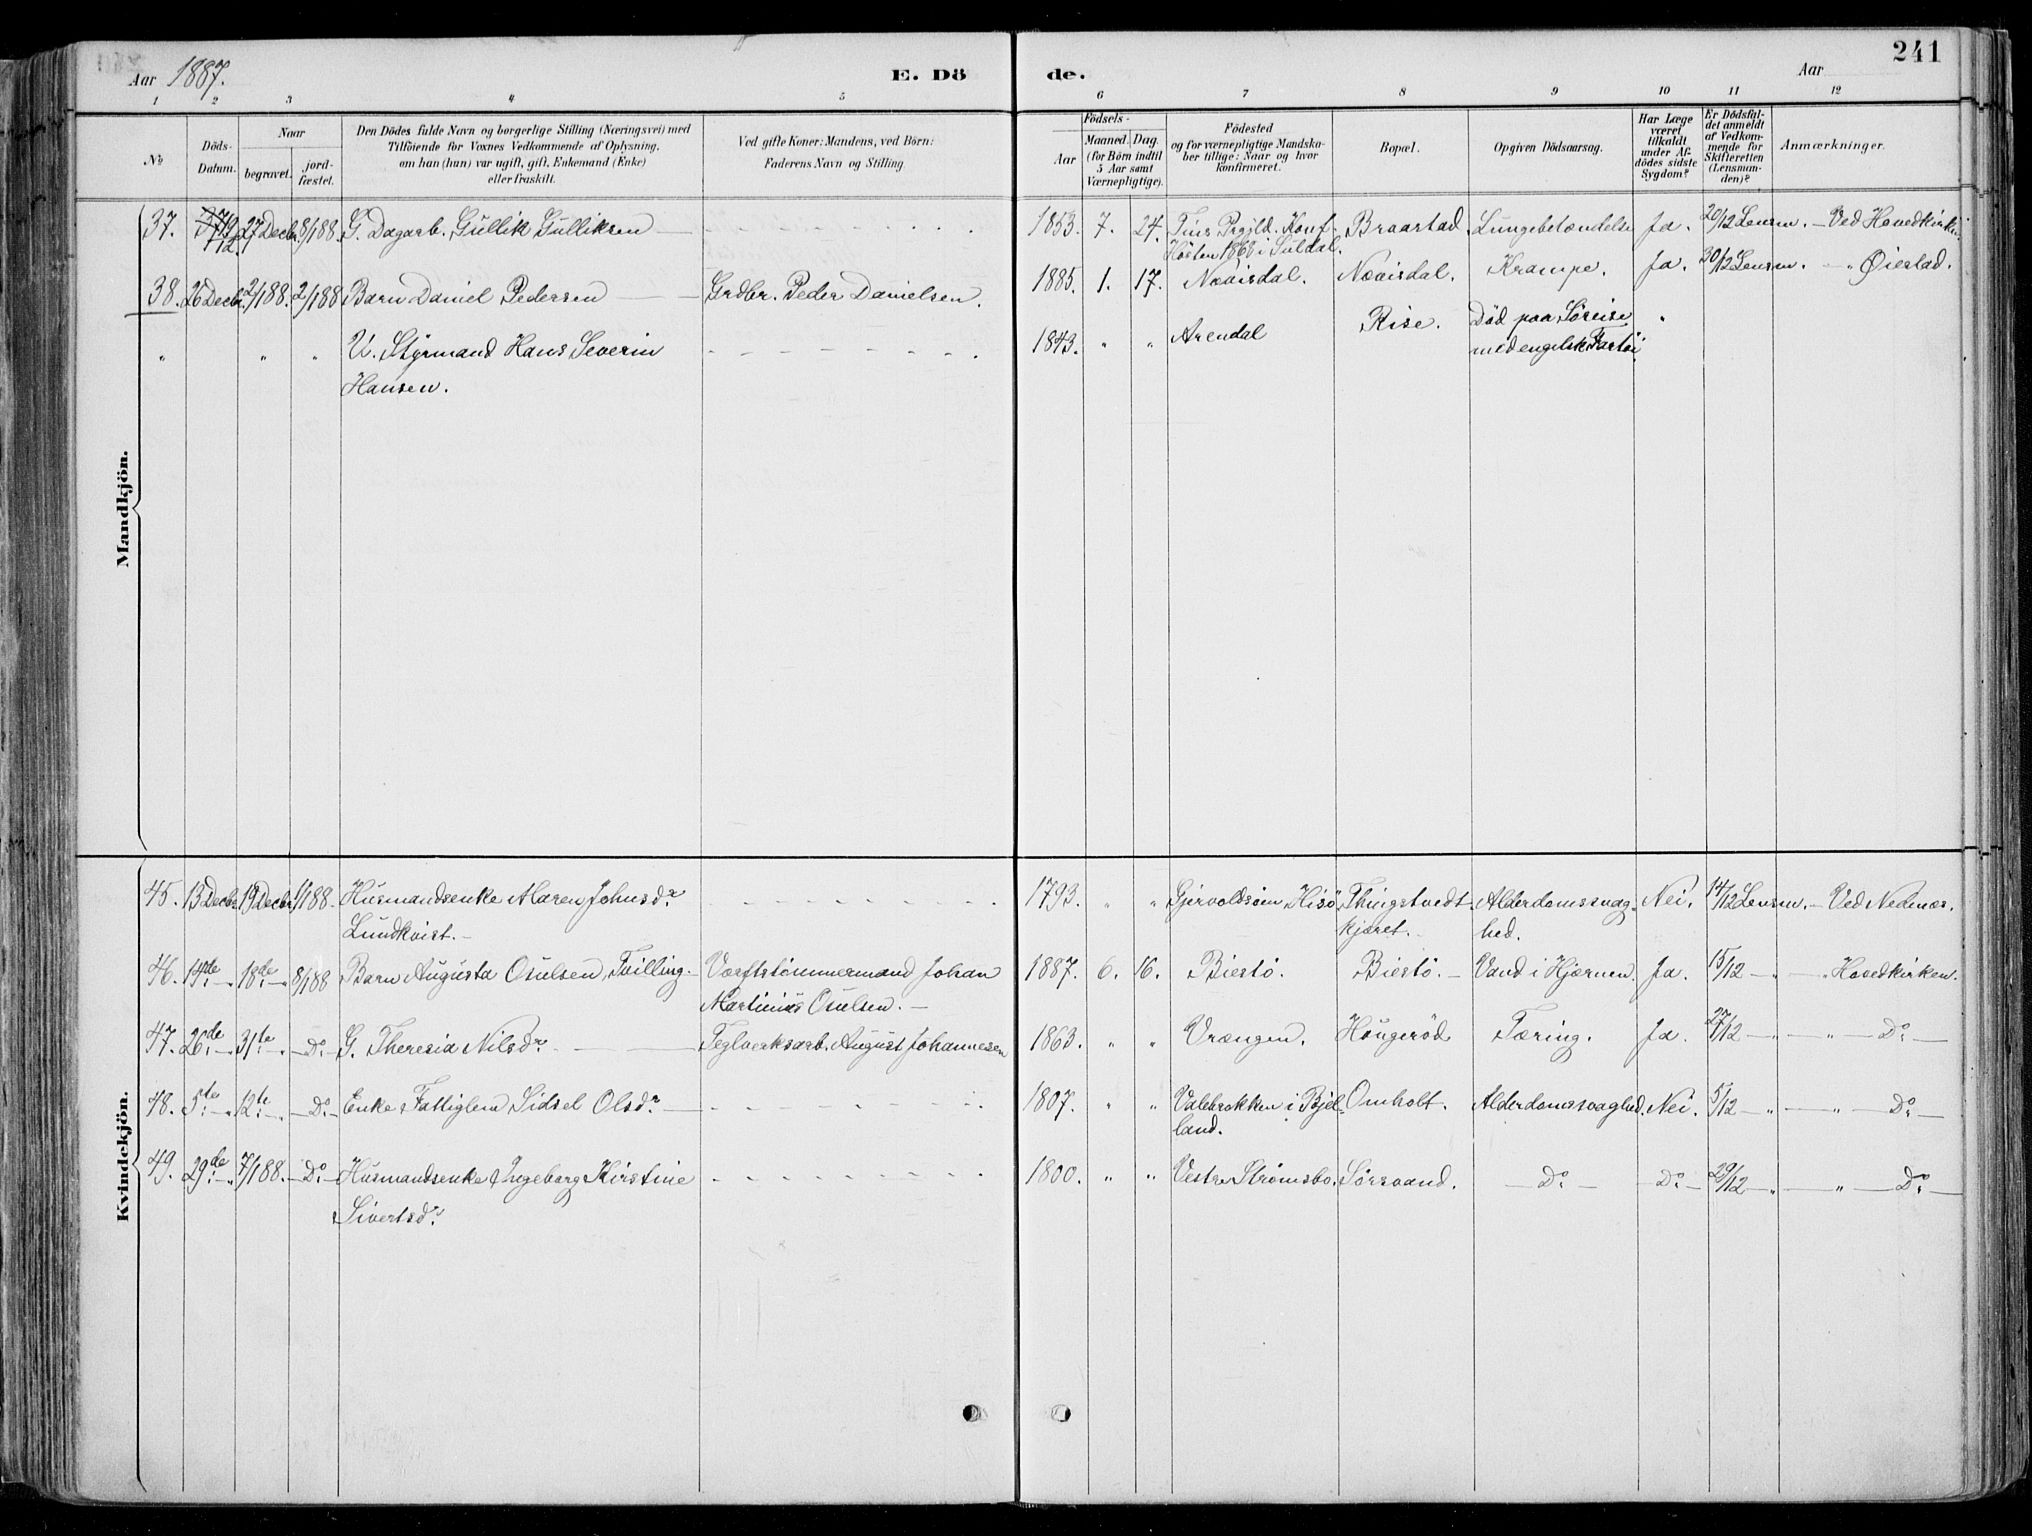 Aar 1887. E. Dö de. Aar 241
1 2 3 4 5 6 7 8 9 10 11 12
No
Döds-Datum.
Naar
begravet.
jord-fæstet.
Den Dödes fulde Navn og borgerlige Stilling (Næringsvei) med
Tilföiende for Voxnes Vedkommende af Oplysning,
om han (hun) var ugift, gift, Enkemand (Enke)
eller fraskilt.
Ved gifte Koner: Mandens, ved Börn:
Faderens Navn og Stilling.
Födsels-
Aar
Maaned. Dag.
(for Börn indtil
5 Aar samt
Værnepligtige).
Födested
og for værnepligtige Mandska-
ber tillige: Naar og hvor
konfirmeret.
Bopæl.
Opgiven Dödsaarsag.
Har Læge
været
tilkaldt
under Af-
dödes sidste
Sygdom?
Er Dödsfal-
det anmeldt
af Vedkom-
mende for
Skifteretten
(Lensman-
den)?
Anmærkninger.
Mandkjön.
37. 27 Decbr. 8/1 88. G. Dagarb. Gullik Gulliksen 1853. 7. 24. Tins Prgjld. Konf. Braastad. Lungebetændelse Ja. 20/12 Lensm. - Ved Hovedkirken.
Høsten 1868 i Suldal.
38. 26 Decbr. 2/1 88. 2/1 88 Barn Daniel Pedersen Grdbr. Peder Danielsen. 1885. 1. 17. Nævisdal. Nævisdal. Krampe. Ja. 30/12 Lensm. - " Øiestad.
" " " U. Styrmand Hans Severin 1843. " " Arendal Rise. Død paa Søreise "
Hansen. med engelsk Fartøi
Kvindekjön.
45. 13 Decbr. 19 Decbr. 1/1 88. Husmandsenke Maren Johnsdr. 1793. " " Gjervoldsøien Hisö Thingstvedt- Alderdomssvag- Nei. 14/12 Lensm. - Ved Nedenæs.
Lundkvist. - kjæret. hed.
46. 14de - " 18de - " 8/1 88 Barn Augusta Osulsen, Tvilling - Værftstømmermand Johan 1887. 6. 16. Biestö. Biestö. - Vand i Hjærnen. Ja. 15/12 - " - " Hovedkirken.
Martinius Osulsen. -
47. 26de - " 31te - " - Do - G. Theresia Nilsdr. Teglverksarb. August Johannesen 1863. " " Vrængen. Hougeröd Tæring. Ja. 27/12 - " - " - Do -
48. 5te - " 12te - " - Do - Enke, Fattiglem Sidsel Olsdr. 1807. " " Valebrokken i Bjel- Omholt. Alderdomssvaghed. Nei. 5/12 - " - " - Do -
land.
49. 29de - " 7/1 88. - Do - Husmandsenke Ingeborg Kirstine 1800. " " Vestre Strømsbo. Sörsvand. - Do - - Do - 29/12 - " - " - Do -
Sivertsdr.